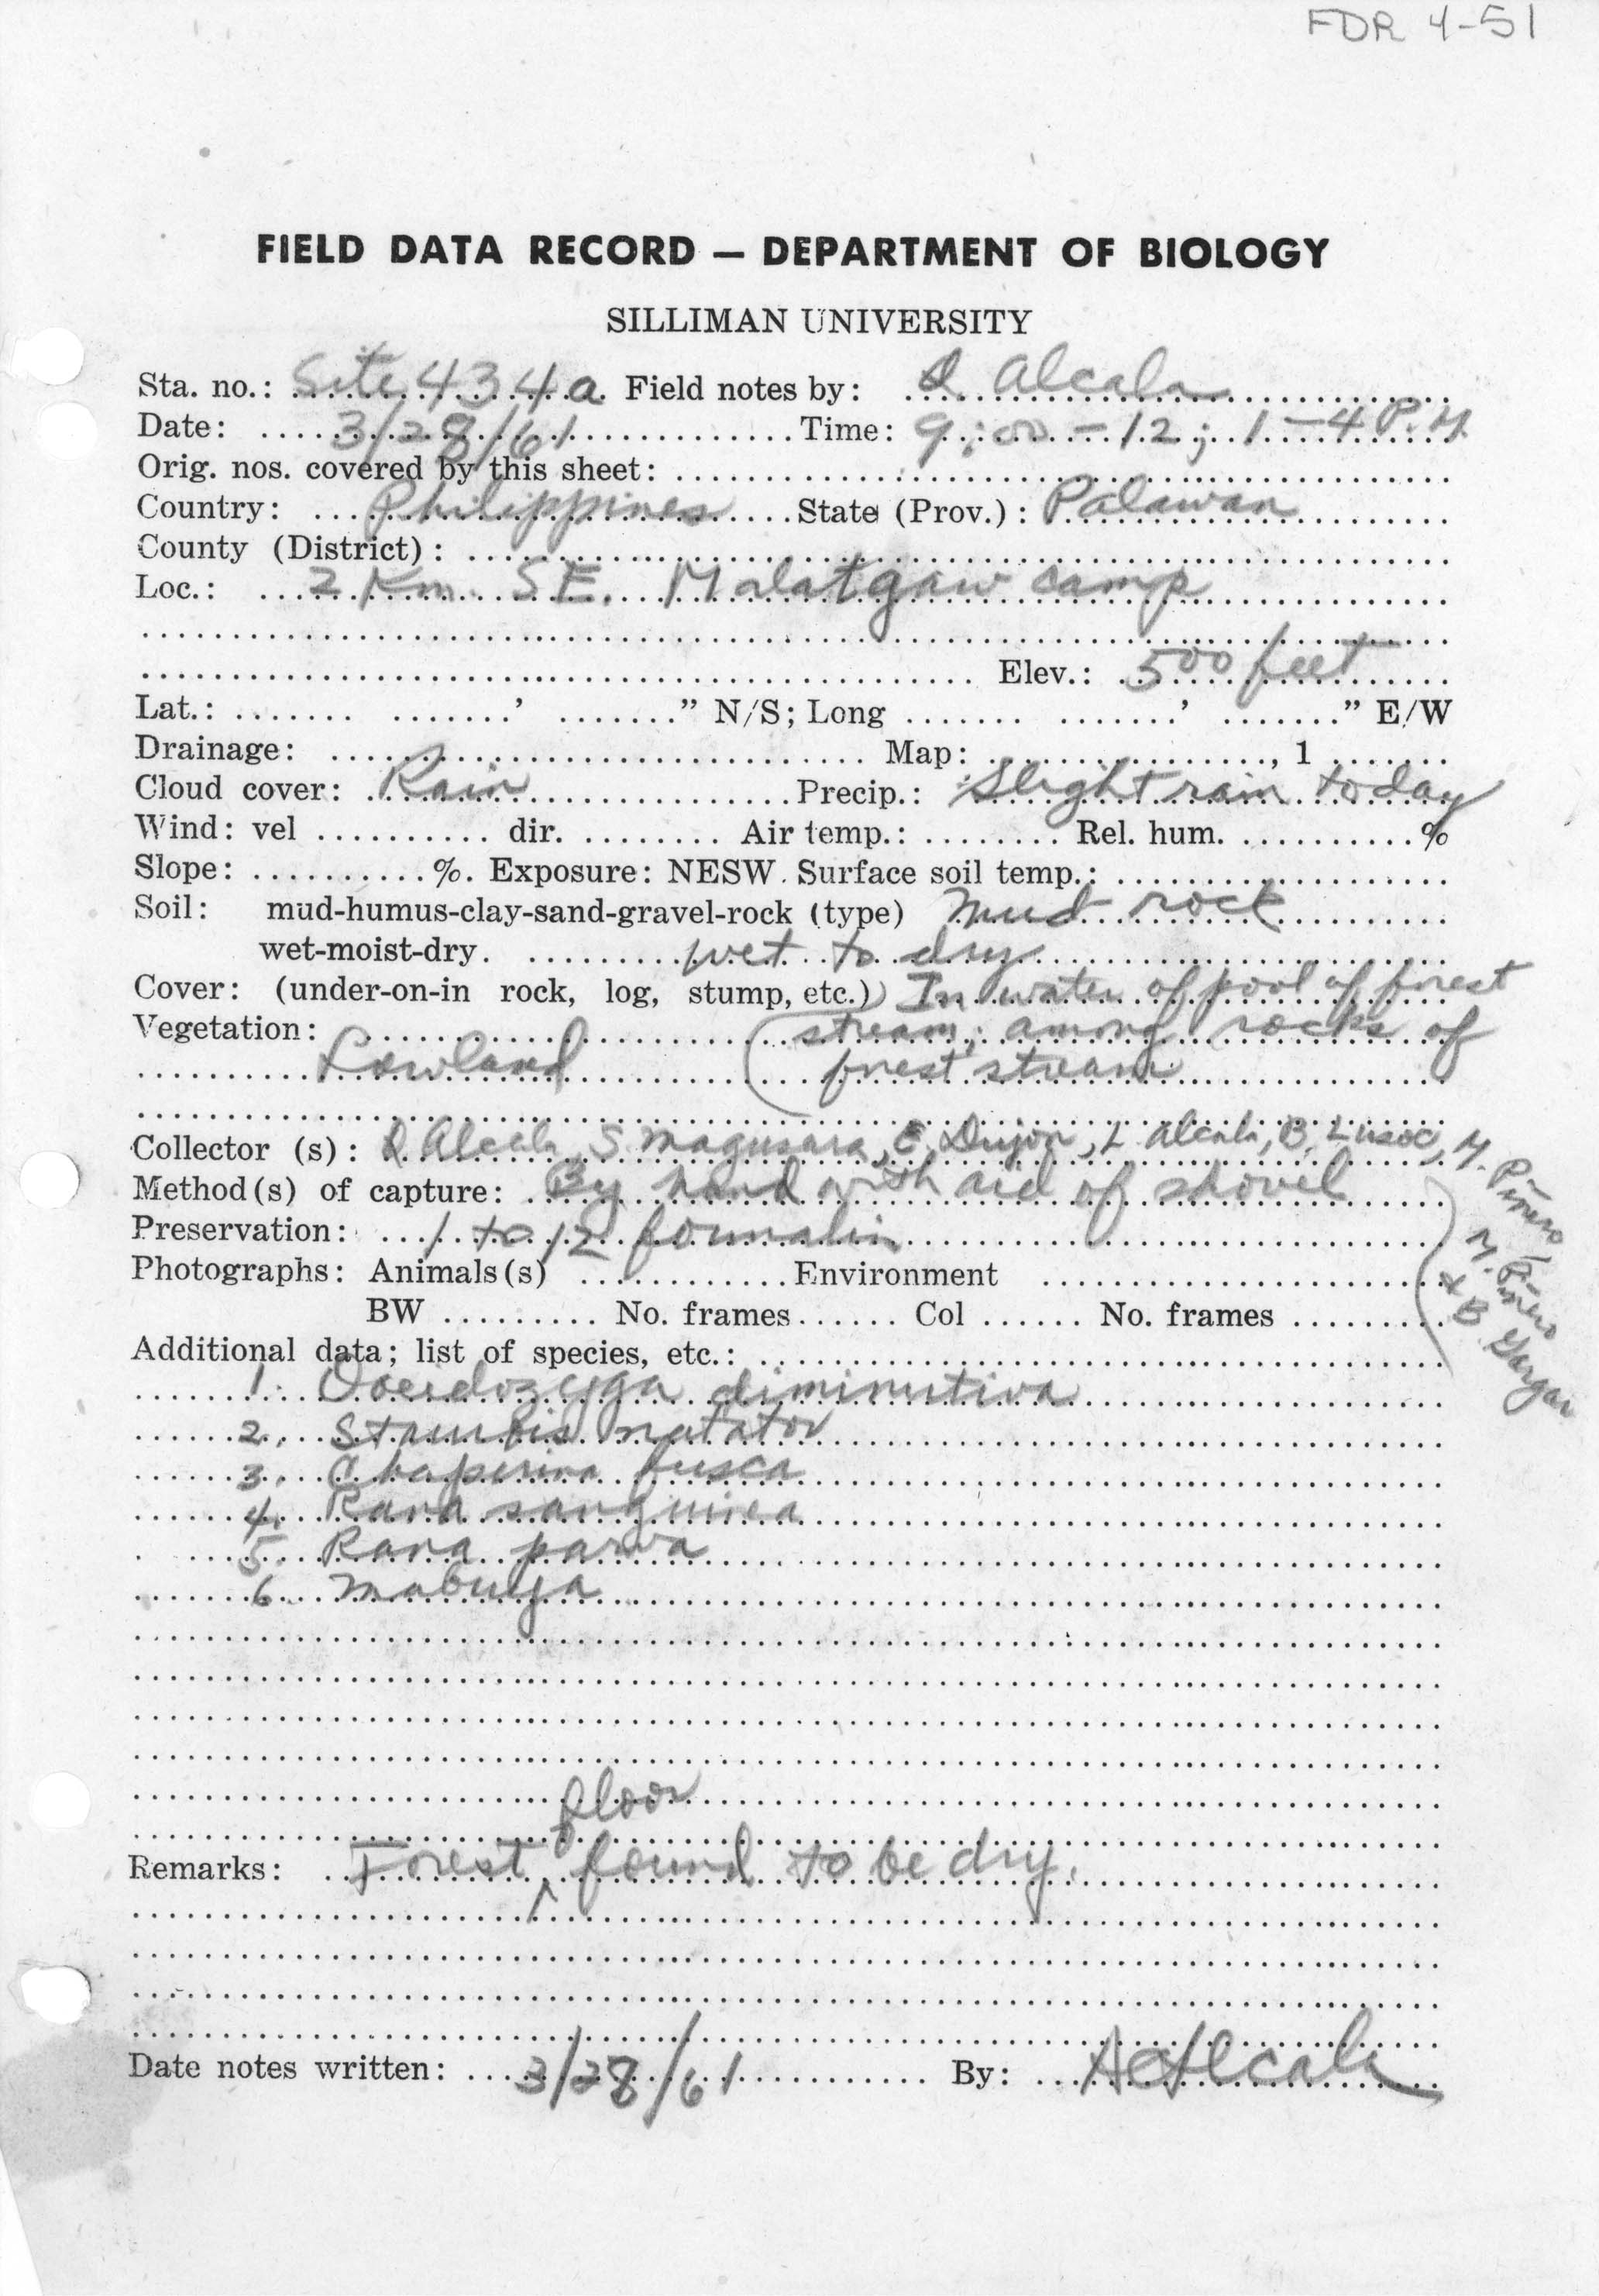 FDR 4-51
FIELD DATA RECORD — DEPARTMENT OF BIOLOGY
SILLIMAN UNIVERSITY
Sta. no.: Site 434a Field notes by: Alcala
Date: 3/28/61 Time: 9:00 - 12; 1-4 P.M.
Orig. nos. covered by this sheet:
Country: Philippines State (Prov.): Palawan
County (District):
Loc.: 2 Km. SE. Malatgaw camp
Elev.: 500 feet
Lat.: ' " N/S; Long ' " E/W
Drainage: Map: , 1
Cloud cover: Rain Precip.: Slight rain today
Wind: vel dir. Air temp.: Rel. hum. %
Slope: %. Exposure: NESW. Surface soil temp.:
Soil: mud-humus-clay-sand-gravel-rock (type) mud rock
wet-moist-dry. wet to dry
Cover: (under-on-in rock, log, stump, etc.) In water of pool of forest
Vegetation: stream; among rocks of
Lowland forest stream
Collector (s): Alcala, S. Magusara, Dujon, L Alcala, B. Lusoc, M. Pinero,
M. Pinero
& B. Gargar
Method(s) of capture: By hand with aid of shovel
Preservation: 1 to 12 formalin
Photographs: Animals(s) Environment
BW No. frames Col No. frames
Additional data; list of species, etc.:
1. Ooeidozyga diminutiva
2. Staurois natator
3. Chaperina fusca
4. Rana sanguinea
5. Rana parva
6. Mabuya
floor
Remarks: Forest ^ found to be dry.
Date notes written: 3/28/61 By: AAlcala